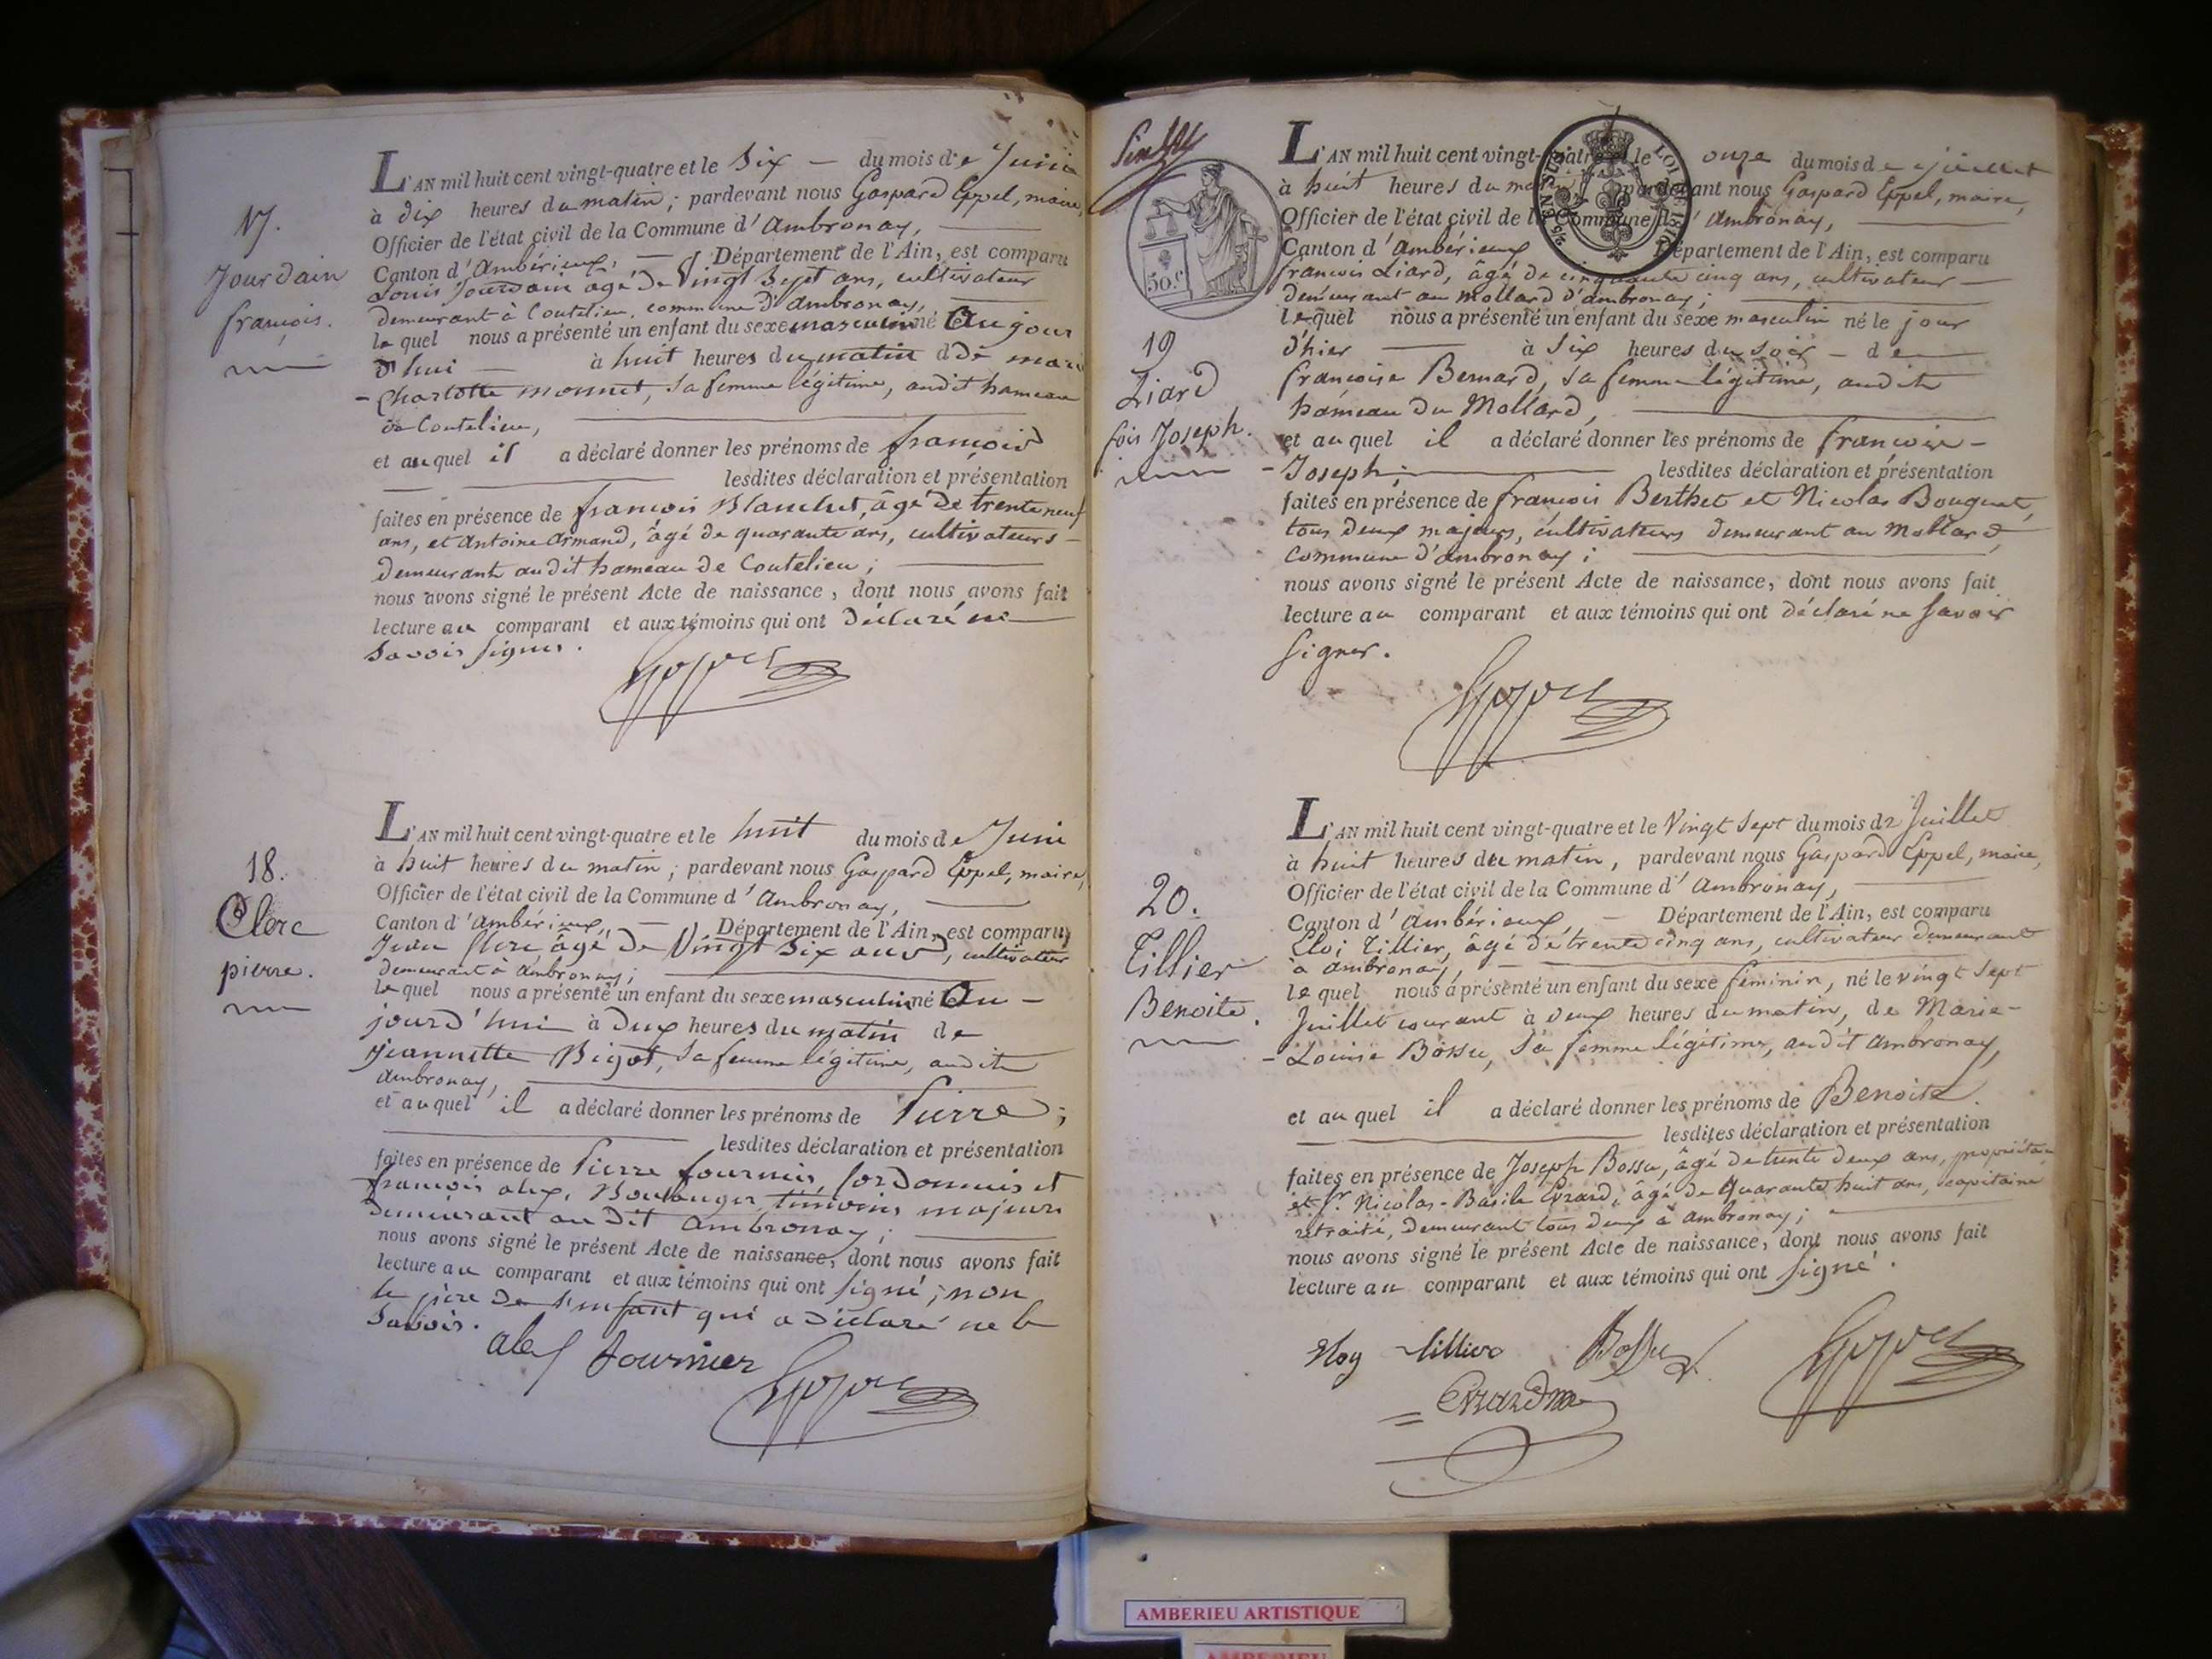 17.
Jourdain
françois.
L'AN mil huit cent vingt-quatre et le Six — du mois de Juin
à dix heures du matin ; pardevant nous Gaspard Eppel, maire,
Officier de l'état civil de la Commune d'ambronay,
Canton d'ambérieux, — Département de l'Ain, est comparu
Louis Jourdain âgé de Vingt Sept ans, cultivateur
demeurant à Coutelieu, commune d'ambronay,
lequel nous a présenté un enfant du sexe masculin né aujour
d'hui — à huit heures du matin de
- Charlotte monnet, sa femme légitime, audit hameau
de Coutelieu,
et auquel il a déclaré donner les prénoms de françois
lesdites déclaration et présentation
faites en présence de françois Blanchet, âgé de trente neuf
ans, et antoine armand, âgé de quarante ans, cultivateurs
demeurant audit hameau de Coutelieu ;
nous avons signé le présent Acte de naissance, dont nous avons fait
lecture au comparant et aux témoins qui ont déclaré ne
savoir signer.
Eppel
18.
Clerc
pierre.
L'AN mil huit cent vingt-quatre et le huit du mois de Juin
à huit heures du matin ; pardevant nous Gaspard Eppel, maire,
Officier de l'état civil de la Commune d'ambronay,
Canton d'ambérieux, — Département de l'Ain, est comparu
Jean Clerc âgé de Vingt Six ans, cultivateur
demeurant à ambronay ;
lequel nous a présenté un enfant du sexe masculin né au-
jourd'hui à deux heures du matin de
Jeannette Bigot, sa femme légitime, audit
ambronay,
et auquel il a déclaré donner les prénoms de Pierre ;
lesdites déclaration et présentation
faites en présence de Pierre fournier, Cordonnier et
françois alex, Boulanger, témoins majeurs
demeurant au dit ambronay ;
nous avons signé le présent Acte de naissance, dont nous avons fait
lecture au comparant et aux témoins qui ont signé ; non
le père de l'enfant qui a déclaré ne le
savoir.
alex fournier
Eppel
50.c
LOI DE 1816
19
Liard
fois Joseph.
L'AN mil huit cent vingt-quatre et le onze du mois de juillet
à huit heures du matin pardevant nous Gaspard Eppel, maire,
Officier de l'état civil de la Commune d'ambronay,
Canton d'ambérieux Département de l'Ain, est comparu
françois Liard, âgé de cinquante cinq ans, cultivateur
demeurant au mollard d'ambronay ;
lequel nous a présenté un enfant du sexe masculin né le jour
d'hier — à Six heures du soir — de
françoise Bernard, sa femme légitime, audit
hameau du Mollard,
et auquel il a déclaré donner les prénoms de françois-
- Joseph ; lesdites déclaration et présentation
faites en présence de françois Berthet et Nicolas Bouquet,
tous deux majeurs, cultivateurs demeurant au Mollard,
commune d'ambronay ;
nous avons signé le présent Acte de naissance, dont nous avons fait
lecture au comparant et aux témoins qui ont déclaré ne savoir
signer.
Eppel
20.
Tillier
Benoite.
L'AN mil huit cent vingt-quatre et le Vingt Sept du mois de Juillet
à huit heures du matin, pardevant nous Gaspard Eppel, maire,
Officier de l'état civil de la Commune d'ambronay,
Canton d'ambérieux — Département de l'Ain, est comparu
Eloi Tillier, âgé de trente cinq ans, cultivateur demeurant
à ambronay,
lequel nous a présenté un enfant du sexe féminin, né le vingt sept
Juillet courant à deux heures du matin, de Marie-
- Louise Bossu, sa femme légitime, audit ambronay,
et auquel il a déclaré donner les prénoms de Benoite.
lesdites déclaration et présentation
faites en présence de Joseph Bossu, âgé de trente deux ans, propriétaire
et Sr. Nicolas-Basile Evrard, âgé de Quarante huit ans, capitaine
retraité, demeurant tous deux à ambronay ;
nous avons signé le présent Acte de naissance, dont nous avons fait
lecture au comparant et aux témoins qui ont signé.
Eloy tillier Bossu Eppel
Evrard
AMBERIEU ARTISTIQUE
AMBERIEU